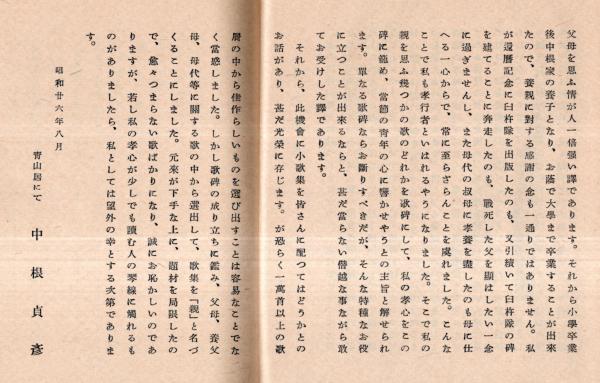 父母を思ふ情が人一倍强い譯であります。それから小學卒業
後中根家の養子となり、お蔭で大學まで卒業することが出來
たので、養親に對する感謝の念も一通りではありません。私
が還曆記念に臼杵隊を出版したのも、又引續いて臼杵隊の碑
を建てることに奔走したのも、戰死した父を顯はしたい一念
に過ぎませんし、また母代の叔母に孝養を盡したのも母に仕
へる一心からで、常に至らざらんことを虞れました。こんな
ことで私も孝行者といはれるやうになりました。そこで私の
親を思ふ幾つかの歌のどれかを歌碑にして、私の孝心をこの
碑に籠め、當節の靑年の心に響かせやうとの主旨と解せられ
ます。單なる歌碑ならお斷りすべきだが、そんな特種なお役
に立つことが出來るならと、甚だ當らない僣越な事ながら敢
てお受けした譯であります。
それから、此機會に小歌集を皆さんに配つてはどうかとの
お話があり、甚だ光榮に存じます。が恐らく一萬首以上の歌
屑の中から佳作らしいものを選び出すことは容易なことでな
く當惑しました。しかし歌碑の成り立ちに鑑み、父母、養父
母、母代等に關する歌の中から選出して、歌集を「親」と名づ
くることにしました。元來が下手な上に、題材を局限したの
で、愈々つまらない歌ばかりになり、誠にお恥かしいのであ
りますが、若し私の孝心が少しでも讀む人の琴線に觸れるも
のがありましたら、私としては望外の幸とする次第でありま
す。
昭和廿六年八月
靑山居にて
中根貞彥